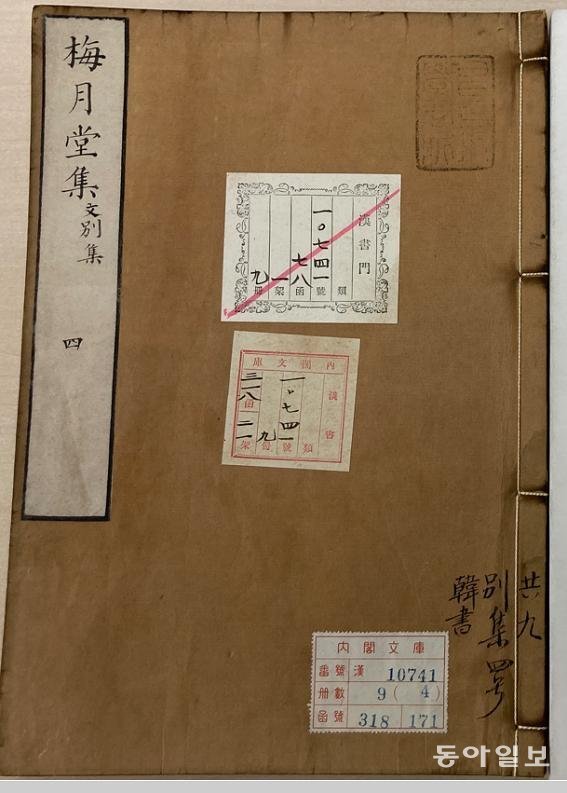 梅月堂集文別集
四
漢書門
類
一〇七四一號
七八函
一架
九冊
內閣文庫
漢書
類
一〇七四一號
九冊
三一八函
二一架
共九
別集 四号
韓書
內閣文庫
番號 漢 10741
册數 9 (4)
函號 318 171
동아일보